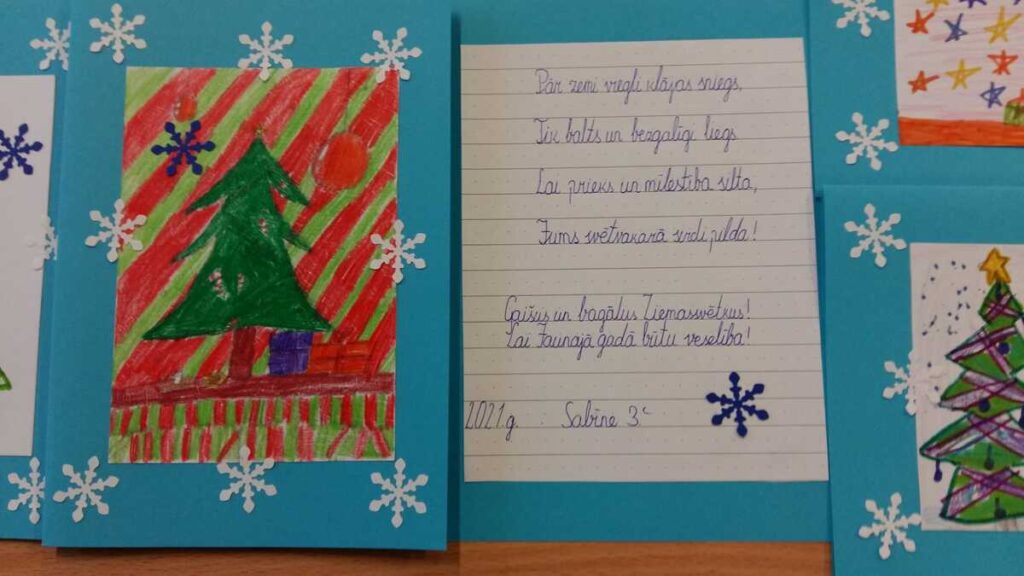 Pār zemi viegli klājas sniegs,
Tik balts un bezgalīgi liegs
Lai prieks un mīlestība silta,
Jums svētvakarā sirdi pilda!
Gaišus un bagātus Ziemassvētkus!
Lai Jaunajā gadā būtu veselība!
2021.g. Sabīne 3.c